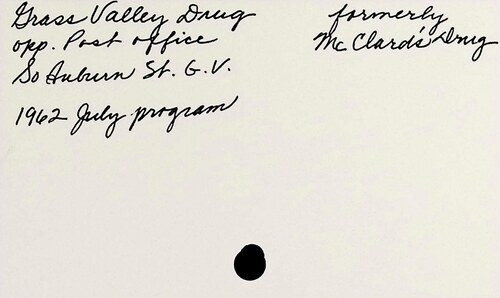 Grass Valley Drug
opp. Post office
So Auburn St. G.V.
1962 July program
formerly
Mc Clard's Drug